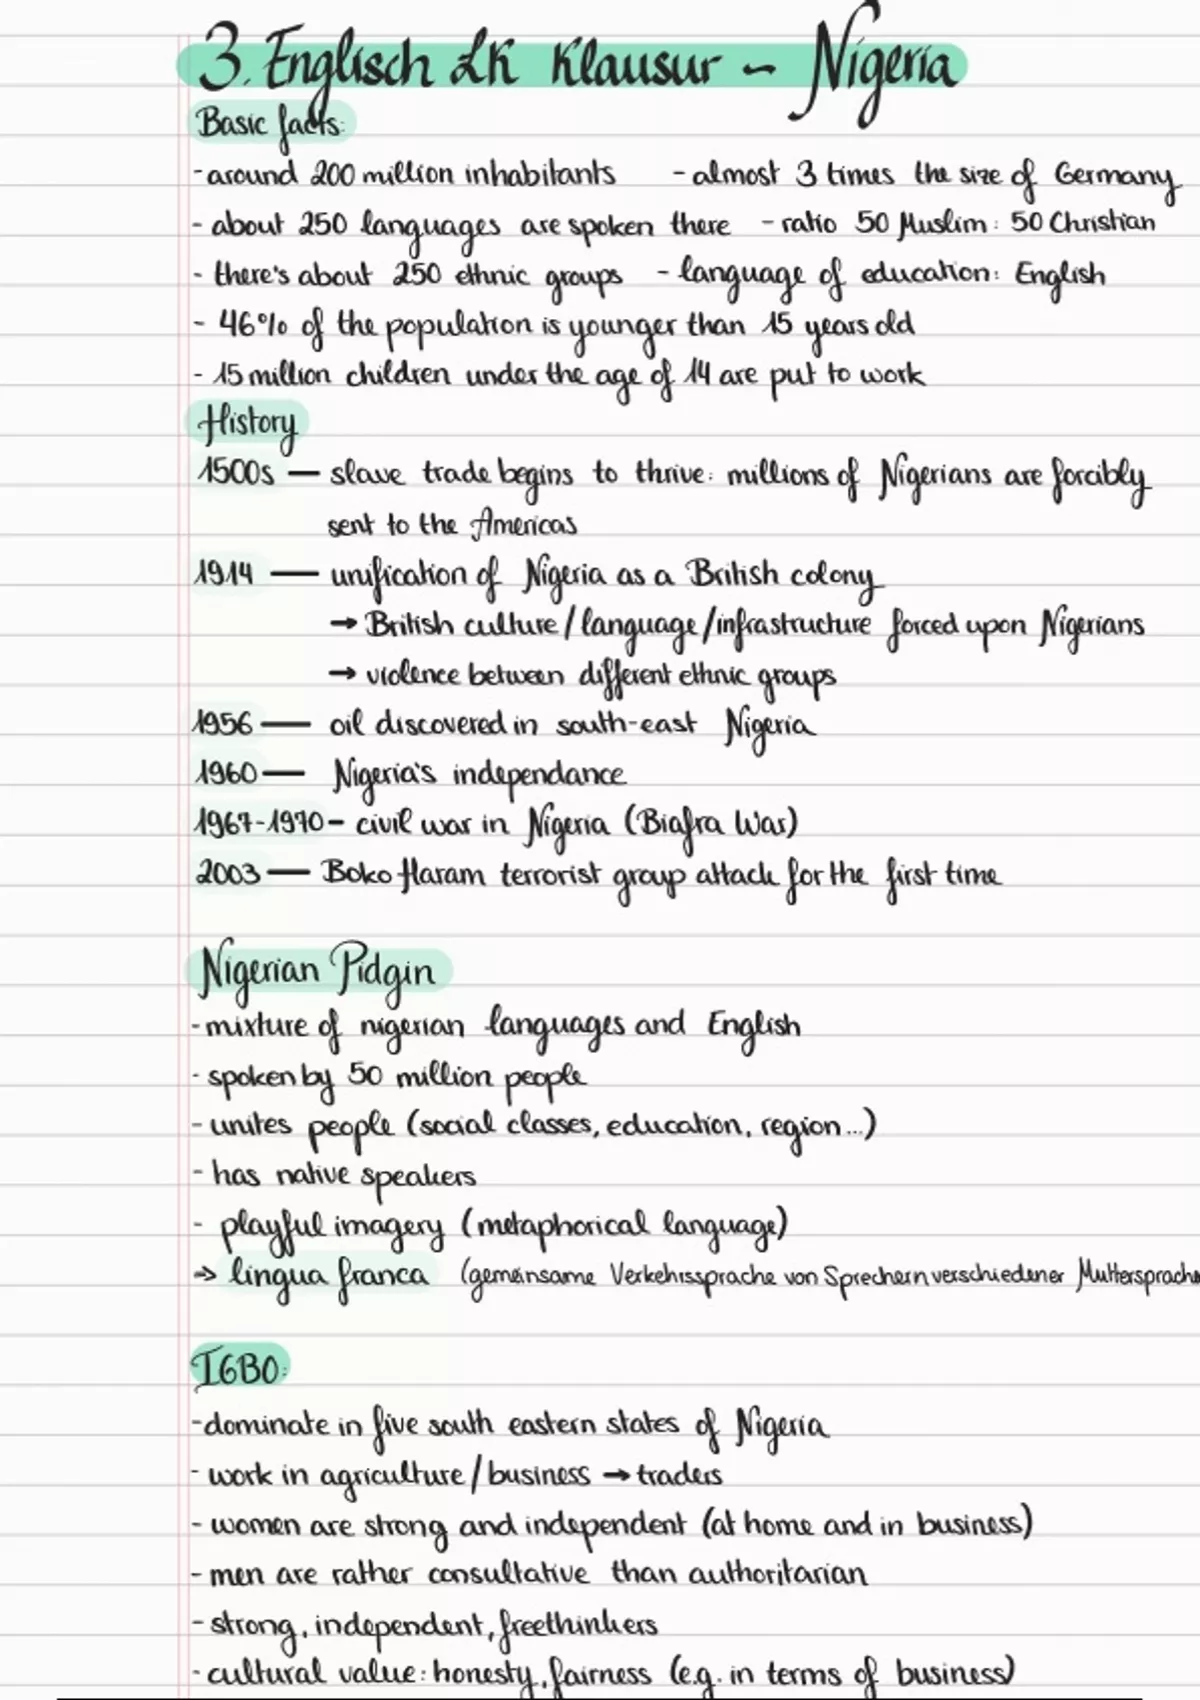 3. Englisch LK Klausur - Nigeria
Basic facts:
- around 200 million inhabitants - almost 3 times the size of Germany
- about 250 languages are spoken there - ratio 50 Muslim : 50 Christian
- there's about 250 ethnic groups - language of education: English
- 46% of the population is younger than 15 years old
- 15 million children under the age of 14 are put to work
History
1500s — slave trade begins to thrive: millions of Nigerians are forcibly
sent to the Americas
1914 — unification of Nigeria as a British colony
→ British culture/language/infrastructure forced upon Nigerians
→ violence between different ethnic groups
1956 — oil discovered in south-east Nigeria
1960 — Nigeria's independance
1967-1970 - civil war in Nigeria (Biafra War)
2003 — Boko Haram terrorist group attack for the first time
Nigerian Pidgin
- mixture of nigerian languages and English
- spoken by 50 million people
- unites people (social classes, education, region...)
- has native speakers
- playful imagery (metaphorical language)
→ lingua franca (gemeinsame Verkehrssprache von Sprechern verschiedener Muttersprache
IGBO:
- dominate in five south eastern states of Nigeria
- work in agriculture/business → traders
- women are strong and independent (at home and in business)
- men are rather consultative than authoritarian
- strong, independent, freethinkers
- cultural value: honesty, fairness (e.g. in terms of business)